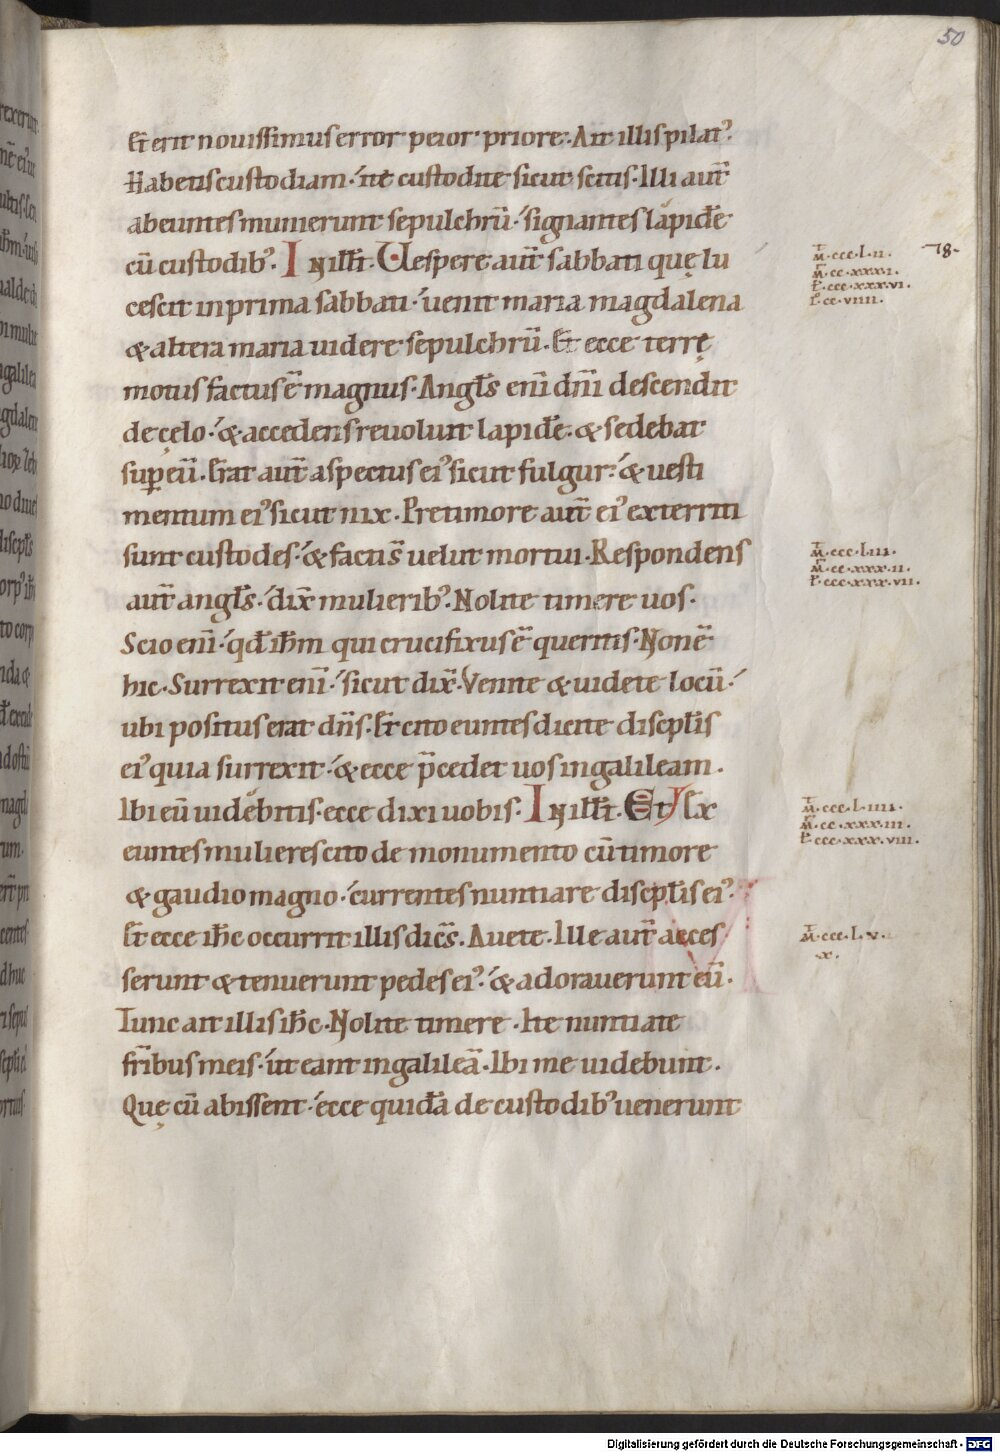 50
Et erit nouissimus error peior priore. Ait illis pilat᾿.
Habetis custodiam. ite custodite sicut scitis. Illi aut̄
abeuntes munierunt sepulchrū. signantes lapidē
cū custodib᾿. IN ill̄t. Uespere aut̄ sabbati quę lu
cescit in prima sabbati. uenit maria magdalena
& altera maria uidere sepulchrū. Et ecce terrę
motus factus ē magnus. Angl̄s eni̅ dn̄i descendit
de cęlo. & accedens reuoluit lapidē. & sedebat
sup̲ eū. Erat aut̄ aspectus ei᾿ sicut fulgur. & uesti
mentum ei᾿ sicut nix. Pre timore aut̄ ei᾿ exterriti
sunt custodes. & facti s̄ uelut mortui. Respondens
aut̄ angl̄s. dix̄ mulierib᾿. Nolite timere uos.
Scio eni̅. qd̄ ih̄m qui crucifixus ē queritis. Non ē
hic. Surrexit eni̅. sicut dix̄. Venite & uidete locū.
ubi positus erat dn̄s. Et cito euntes dicite discipl̄is
ei᾿ quia surrexit. & ecce p̄cedet uos in galileam.
Ibi eū uidebitis. ecce dixi uobis. IN ill̄t. Et Ex
euntes mulieres cito de monumento cū timore
& gaudio magno. currentes nuntiare discipl̄is ei᾿.
Et ecce ih̄c occurrit illis dicēs. Auete. Ille aut̄ acces
serunt & tenuerunt pedes ei᾿. & adorauerunt eū.
Tunc ait illis ih̄c. Nolite timere. Ite nuntiate
fr̄ibus meis. ut eant in galileā. Ibi me uidebunt.
Quę cū abissent. ecce quidā de custodib᾿ uenerunt
M̄. ccc. L. ii.
M̄. cc. xxx. i.
L̄. ccc. xxx. vi.
I. cc. viiii.
78.
M̄. ccc. L. iii.
M̄. cc. xxx. ii.
L̄. ccc. xxx. vii.
M̄. ccc. L. iiii.
M̄. cc. xxx. iii.
L̄. ccc. xxx. viii.
M̄. ccc. L. v.
x.
Digitalisierung gefördert durch die Deutsche Forschungsgemeinschaft - DFG